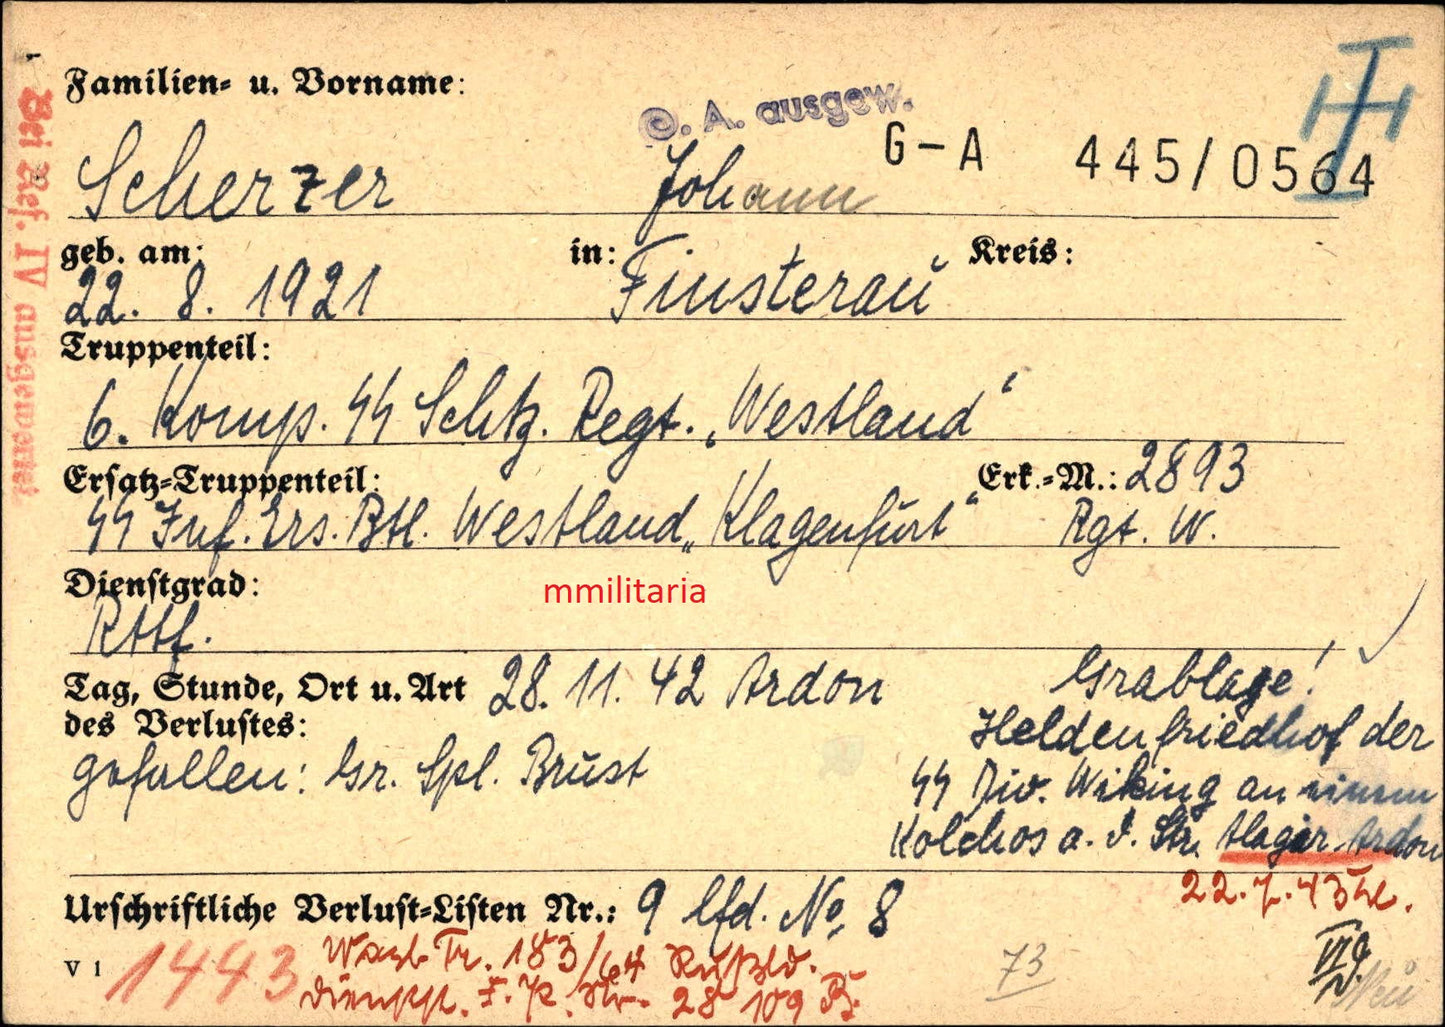 Familien- u. Vorname:
O. A. ausgew.
G-A 445/0564
Scherzer Johann
geb. am: in: Kreis:
22. 8. 1921 Finsterau
Truppenteil:
6. Komp. SS Schtz. Regt. „Westland“
Ersatz-Truppenteil: Erk.-M.: 2893
SS Inf. Ers. Btl. Westland „Klagenfurt“ Rgt. W.
Dienstgrad:
mmilitaria
Rttf.
Tag, Stunde, Ort u. Art 28. 11. 42 Ardon
des Verlustes:
gefallen: Gr. Spl. Brust
Grablage!
Heldenfriedhof der
SS Div. Wiking an einem
Kolchos a. d. Str. Alagir-Ardon
22.7.43
Urschriftliche Verlust-Listen Nr.: 9 lfd. No. 8
V 1
1443
Tr. 183/64 Rußld.
28 109
73
Bei Ref. IV ausgewertet